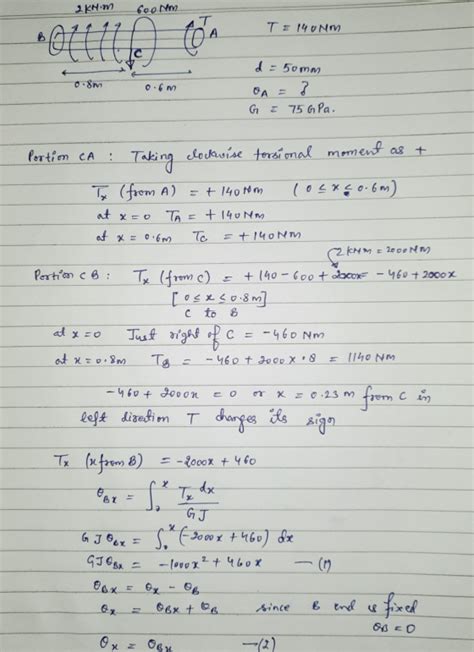 2 KN.m 600 Nm
T
B C A
0.8m 0.6m
T = 140 Nm
d = 50mm
θA = ?
G = 75 GPa.
Portion CA : Taking clockwise torsional moment as +
Tx (from A) = + 140 Nm ( 0 ≤ x ≤ 0.6m)
at x = 0 TA = + 140 Nm
at x = 0.6m TC = + 140 Nm
2 KNm = 2000 Nm
Portion CB : Tx (from C) = + 140 - 600 + 2000x = - 460 + 2000x
[ 0 ≤ x ≤ 0.8m]
C to B
at x = 0 Just right of C = - 460 Nm
at x = 0.8m TB = - 460 + 2000 x .8 = 1140 Nm
- 460 + 2000x = 0 or x = 0.23 m from C in
left direction T changes its sign
Tx (x from B) = - 2000x + 460
θBx = ∫₀ˣ Tx dx / GJ
GJ θBx = ∫₀ˣ (-2000x + 460) dx
GJθBx = - 1000x² + 460x — (1)
θBx = θx - θB
θx = θBx + θB since B end is fixed
θB = 0
θx = θBx — (2)